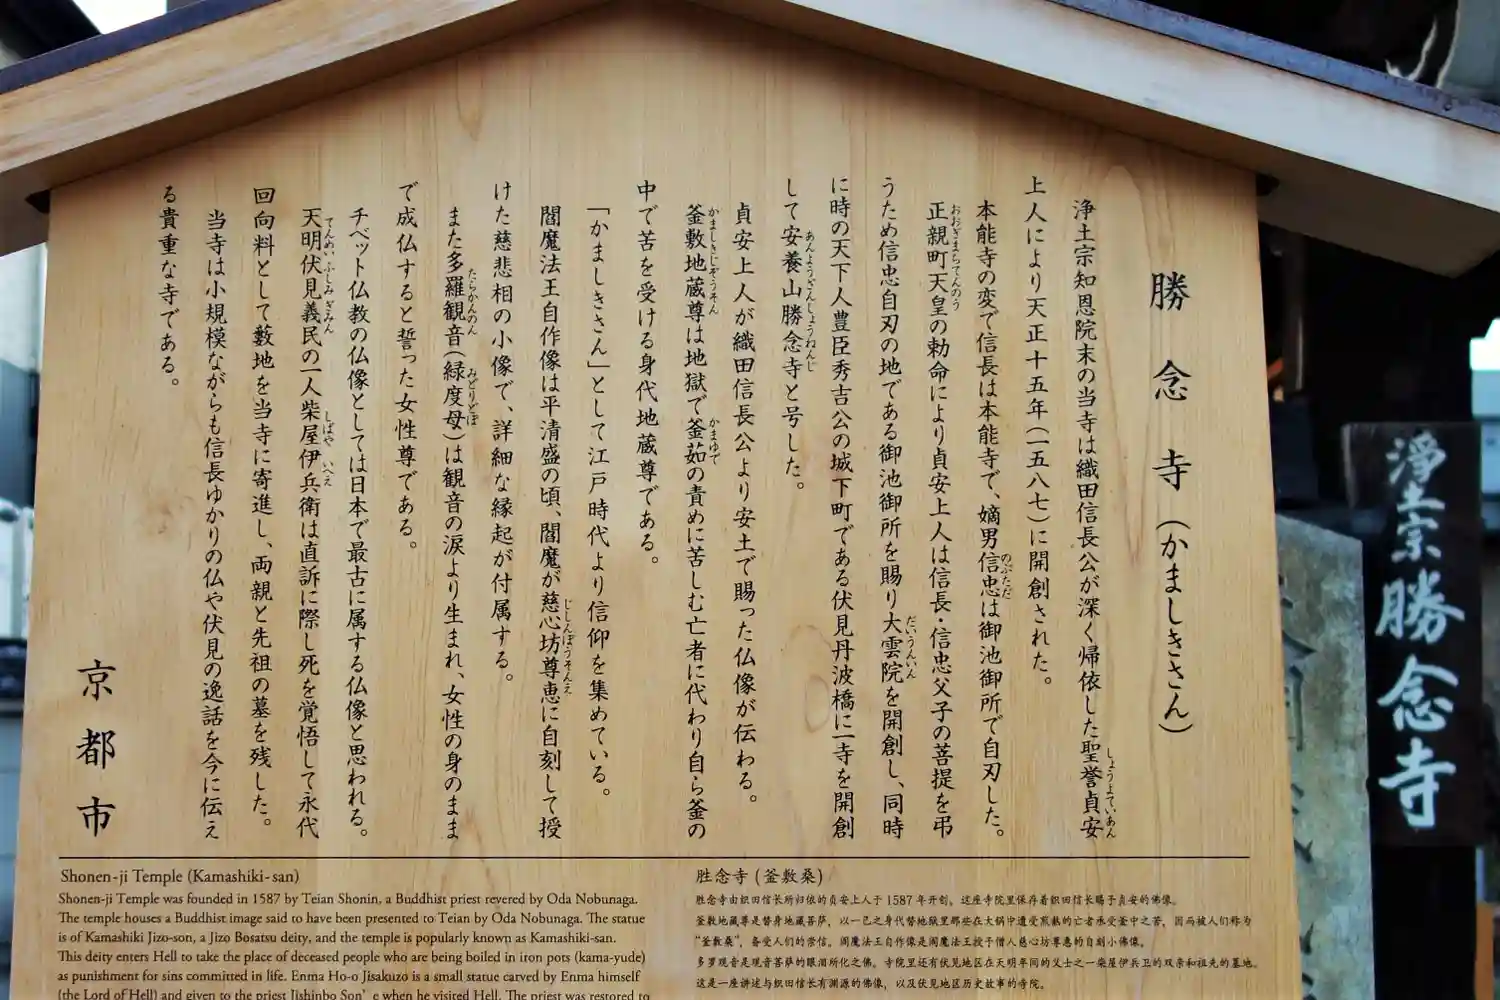 勝念寺（かましきさん）
浄土宗知恩院末の当寺は織田信長公が深く帰依した聖誉貞安
しょうよていあん
上人により天正十五年（一五八七）に開創された。
本能寺の変で信長は本能寺で、嫡男信忠は御池御所で自刃した。
のぶただ
正親町天皇の勅命により貞安上人は信長・信忠父子の菩提を弔
おおぎまちてんのう
うため信忠自刃の地である御池御所を賜り大雲院を開創し、同時
だいうんいん
に時の天下人豊臣秀吉公の城下町である伏見丹波橋に一寺を開創
して安養山勝念寺と号した。
あんようざんしょうねんじ
貞安上人が織田信長公より安土で賜った仏像が伝わる。
釜敷地蔵尊は地獄で釜茹の責めに苦しむ亡者に代わり自ら釜の
かましきじぞうそん かまゆで
中で苦を受ける身代地蔵尊である。
「かましきさん」として江戸時代より信仰を集めている。
閻魔法王自作像は平清盛の頃、閻魔が慈心坊尊恵に自刻して授
じしんぼうそんえ
けた慈悲相の小像で、詳細な縁起が付属する。
また多羅観音（緑度母）は観音の涙より生まれ、女性の身のまま
たらかんのん みどりどぼ
で成仏すると誓った女性尊である。
チベット仏教の仏像としては日本で最古に属する仏像と思われる。
天明伏見義民の一人柴屋伊兵衛は直訴に際し死を覚悟して永代
てんめいふしみぎみん しばや いへえ
回向料として藪地を当寺に寄進し、両親と先祖の墓を残した。
当寺は小規模ながらも信長ゆかりの仏や伏見の逸話を今に伝え
る貴重な寺である。
京都市
Shonen-ji Temple (Kamashiki-san)
Shonen-ji Temple was founded in 1587 by Teian Shonin, a Buddhist priest revered by Oda Nobunaga.
The temple houses a Buddhist image said to have been presented to Teian by Oda Nobunaga. The statue
is of Kamashiki Jizo-son, a Jizo Bosatsu deity, and the temple is popularly known as Kamashiki-san.
This deity enters Hell to take the place of deceased people who are being boiled in iron pots (kama-yude)
as punishment for sins committed in life. Enma Ho-o Jisakuzo is a small statue carved by Enma himself
(the Lord of Hell) and given to the priest Jishinbo Son'e when he visited Hell. The priest was restored to
胜念寺（釜敷桑）
胜念寺由织田信长所归依的贞安上人于1587年开创。这座寺院里保存着织田信长赐予贞安的佛像。
釜敷地藏尊是替身地藏菩萨，以一己之身代替地狱里那些在大锅中遭受煎熬的亡者承受釜中之苦，因而被人们称为
“釜敷桑”，备受人们的崇信。阎魔法王自作像是阎魔法王授予僧人慈心坊尊惠的自刻小佛像。
多罗观音是观音菩萨的眼泪所化之佛。寺院里还有伏见地区在天明年间的义士之一柴屋伊兵卫的双亲和祖先的墓地。
这是一座讲述与织田信长有渊源的佛像，以及伏见地区历史故事的寺院。
淨土宗勝念寺